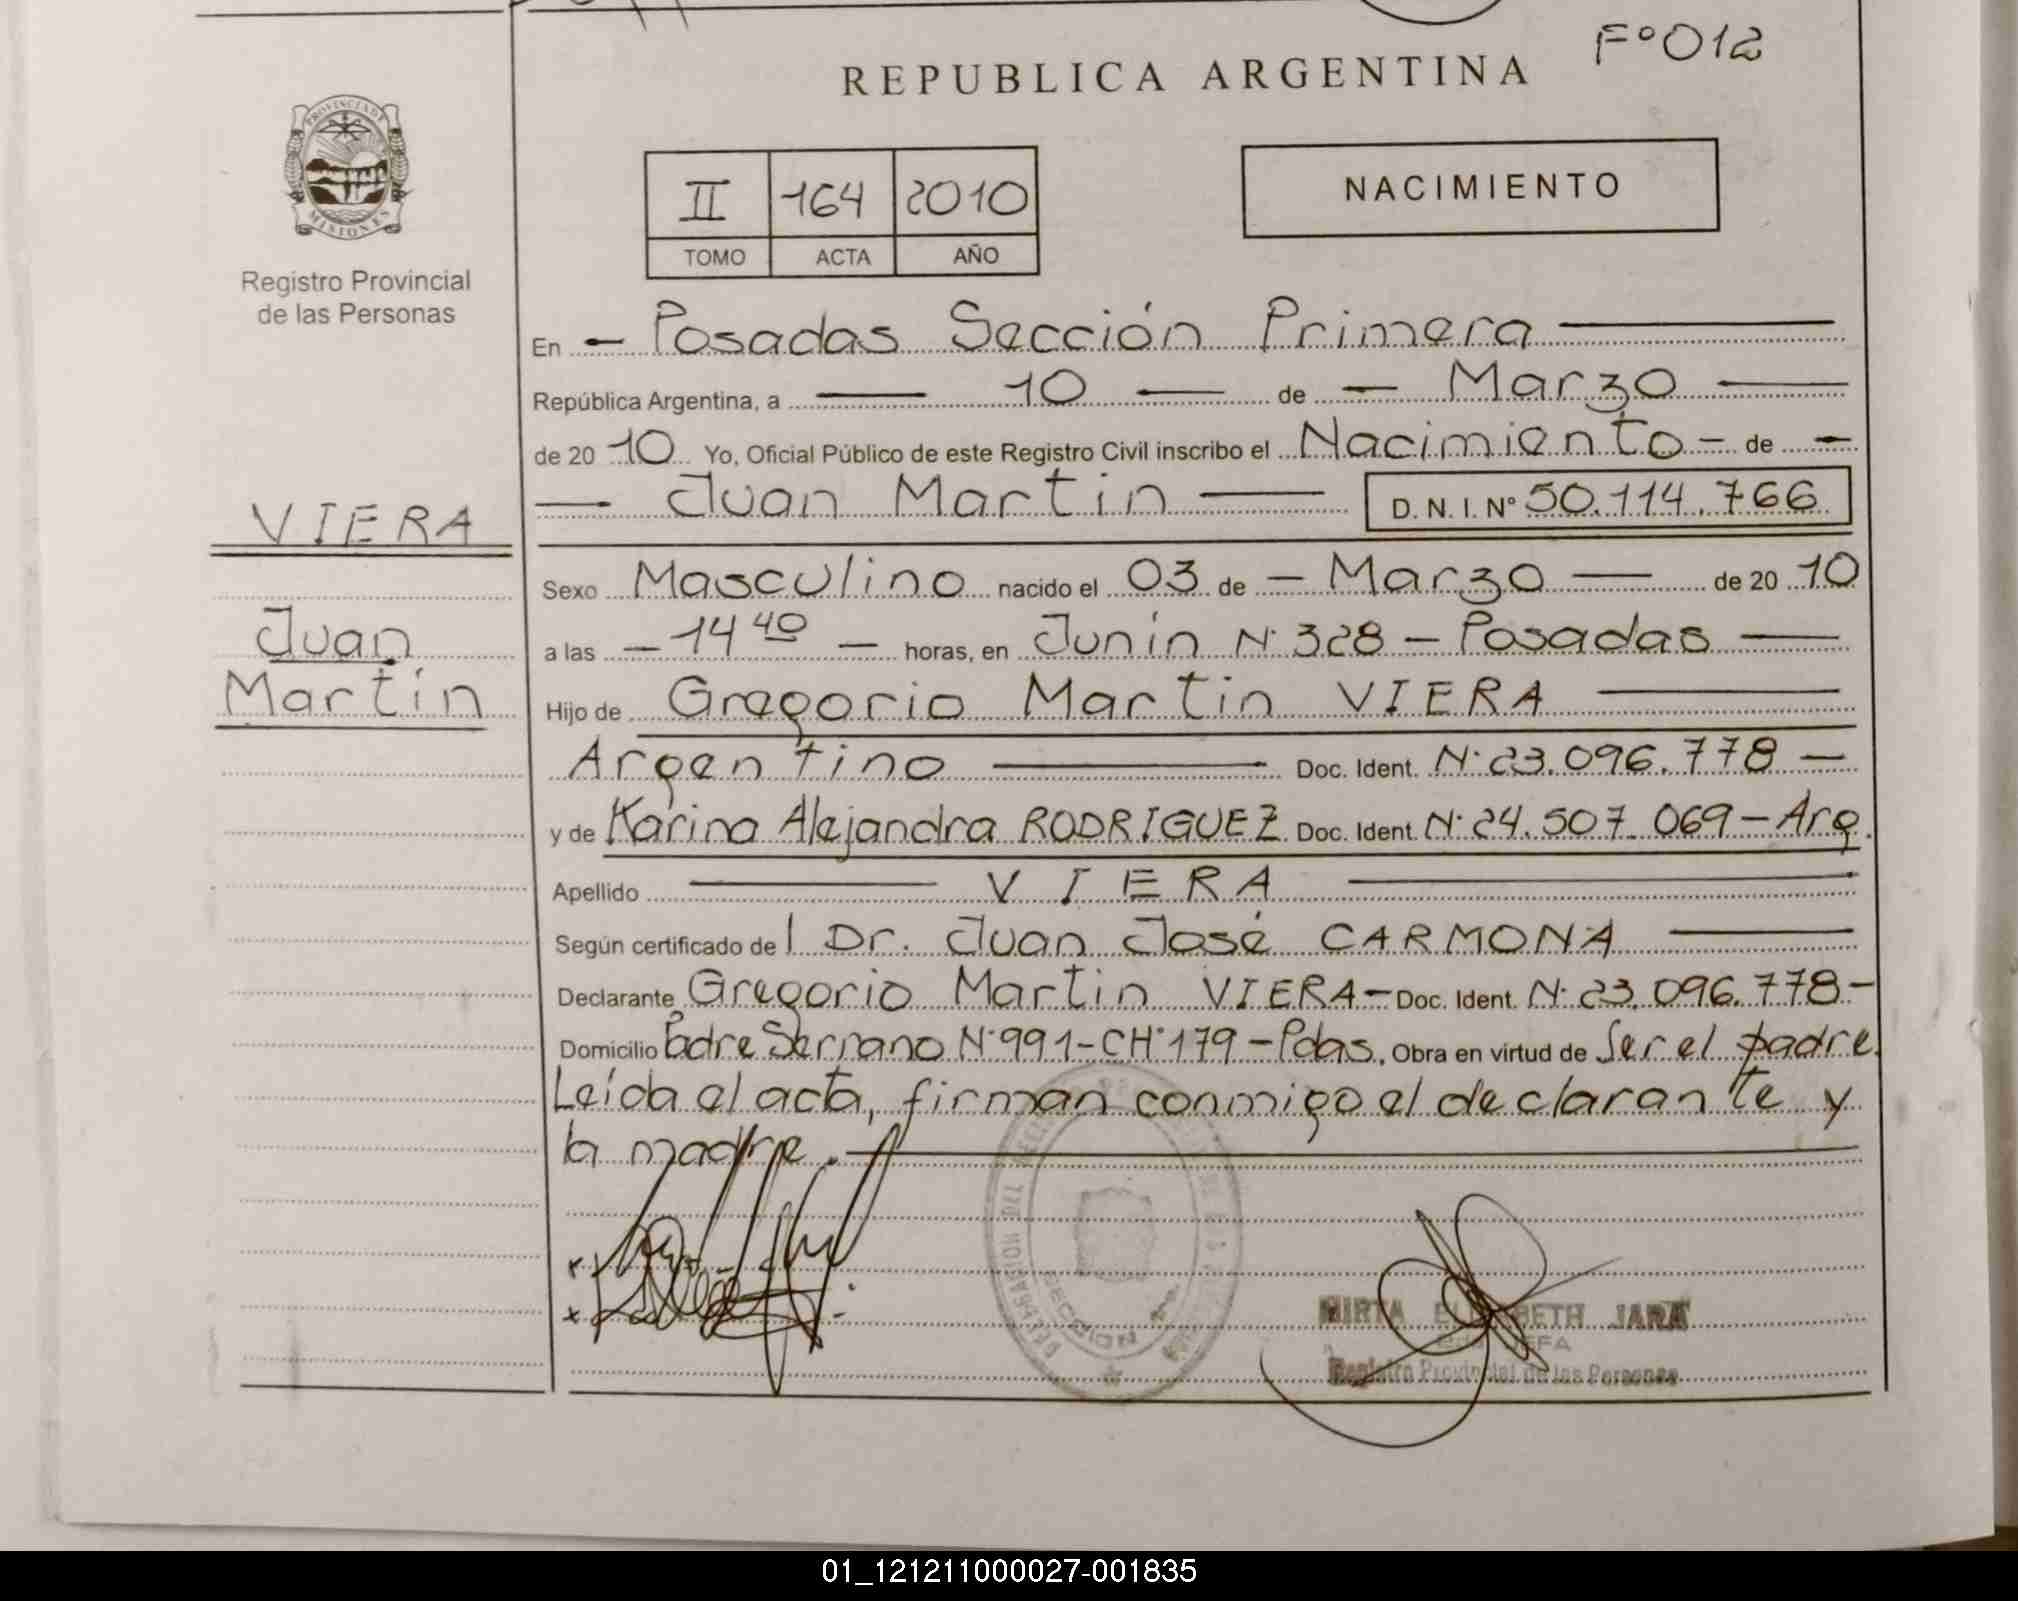 F° 012
REPUBLICA ARGENTINA
PROVINCIA DE
MISIONES
Registro Provincial
de las Personas
II 164 2010
TOMO ACTA AÑO
NACIMIENTO
En - Posadas Sección Primera
República Argentina, a 10 de - Marzo
de 20 10 Yo, Oficial Público de este Registro Civil inscribo el Nacimiento - de -
Juan Martin D. N. I. N° 50.114.766
VIERA
Juan
Martín
Sexo Masculino nacido el 03 de - Marzo de 20 10
a las - 14 40 - horas, en Junín N° 328 - Posadas
Hijo de Gregorio Martin VIERA
Argentino Doc. Ident. N° 23.096.778 -
y de Karina Alejandra RODRIGUEZ Doc. Ident. N° 24.507.069 - Arg.
Apellido VIERA
Según certificado de l Dr. Juan José CARMONA
Declarante Gregorio Martin VIERA - Doc. Ident. N° 23.096.778 -
Domicilio Padre Serrano N° 991 - CH° 179 - Pdas. Obra en virtud de Ser el padre.
Leída el acta, firman conmigo el declarante y
la madre.
MIRTA ELIZABETH JARA
JEFA
Registro Provincial de las Personas
01_121211000027-001835